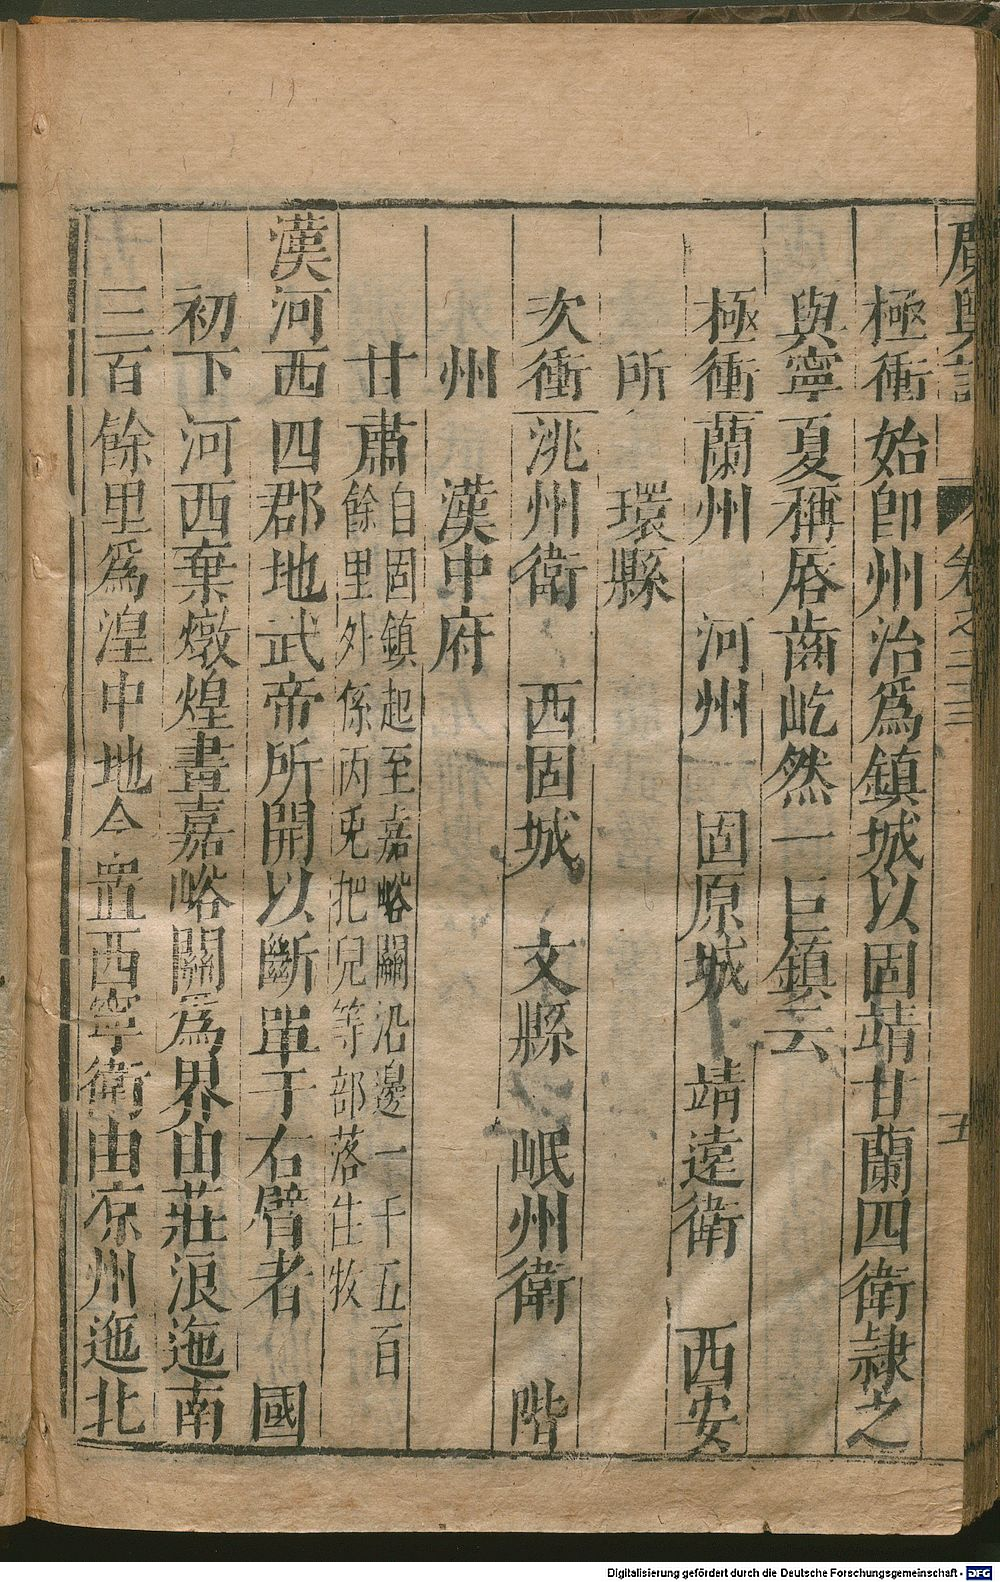 廣輿記 卷之二十三 五
極衝始卽州治爲鎮城以固靖甘蘭四衛隷之
與寧夏稱唇齒屹然一巨鎮云
極衝蘭州 河州 固原城 靖遠衛 西安
所 環縣
次衝洮州衛 西固城 文縣 岷州衛 階
州 漢中府
甘肅自固鎮起至嘉峪關沿邊一千五百
餘里外係丙兎把兒等部落住牧
漢河西四郡地武帝所開以斷單于右臂者 國
初下河西棄燉煌畫嘉峪關爲界由莊浪迤南
三百餘里爲湟中地今置西寧衛由凉州迤北
Digitalisierung gefördert durch die Deutsche Forschungsgemeinschaft - DFG